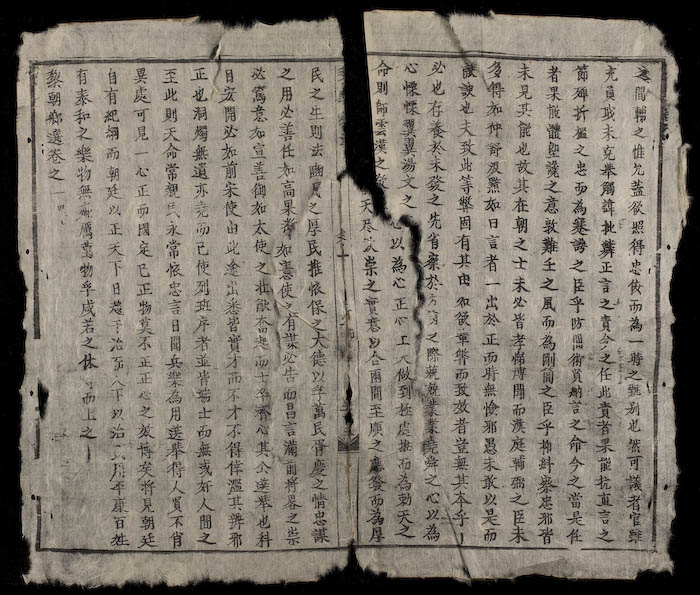 之間歸之惟允蓋欲照得忠佞而為一時之甄別也然可議者官雖
充員或未克舉觸諱批鱗正言之責今之任此責者果能抗直言之
節殫折檻之忠而為蹇諤之臣乎防閑衛 納言之命今之當是任
者果能體堲讒之意敦難壬之風而為剛簡之臣乎抑糾察忠邪皆
未見其能也故其在朝之士未必皆孝悌博聞而漢庭輔弼之臣未
多得如仲舒汲黯如日言者一出於正而時無憸邪愚未敢以是而
諛也大致此等弊固有其由如欲革弊而致效者豈無其本乎
必也存養於未發之先省察於方萌之際兢兢業業堯舜之心以為
心慄慄翼翼湯文之心以為心正心上做到極處推而為勅天之
命則師雲漢之敬天尽欽崇之實意以合兩間至順之 答而為厚
民之生則法豳風之厚民推懷保之大德以孚萬民胥慶之情忠謀
之用必善任如高果者如憲使之有謀必告而昌言滿前將畧之崇
必篤意如宣善御如太使之壯猷奮起而士卒齊心其公選舉也科
目宏開必如前宋使由此途出悉皆實才而不才不得倖濫其辨邪
正也洞燭無遺亦堯而已使列班序者並皆端士而無或奸人間之
至此則天命常親民永常懷忠言日聞兵樂為用選舉得人賢不肖
異處可見一心正而國定已正物莫不正正心之效博矣將見朝廷
自有紀綱而朝廷以正天下日趨于治而天下以治民用平康百姓
有泰和之樂物無疵厲萬物孚咸若之休 而上之
黎朝鄉選卷之一